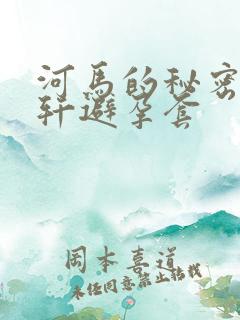 河馬的秘密
轩避孕套
岡本喜道
未经同意禁止转载